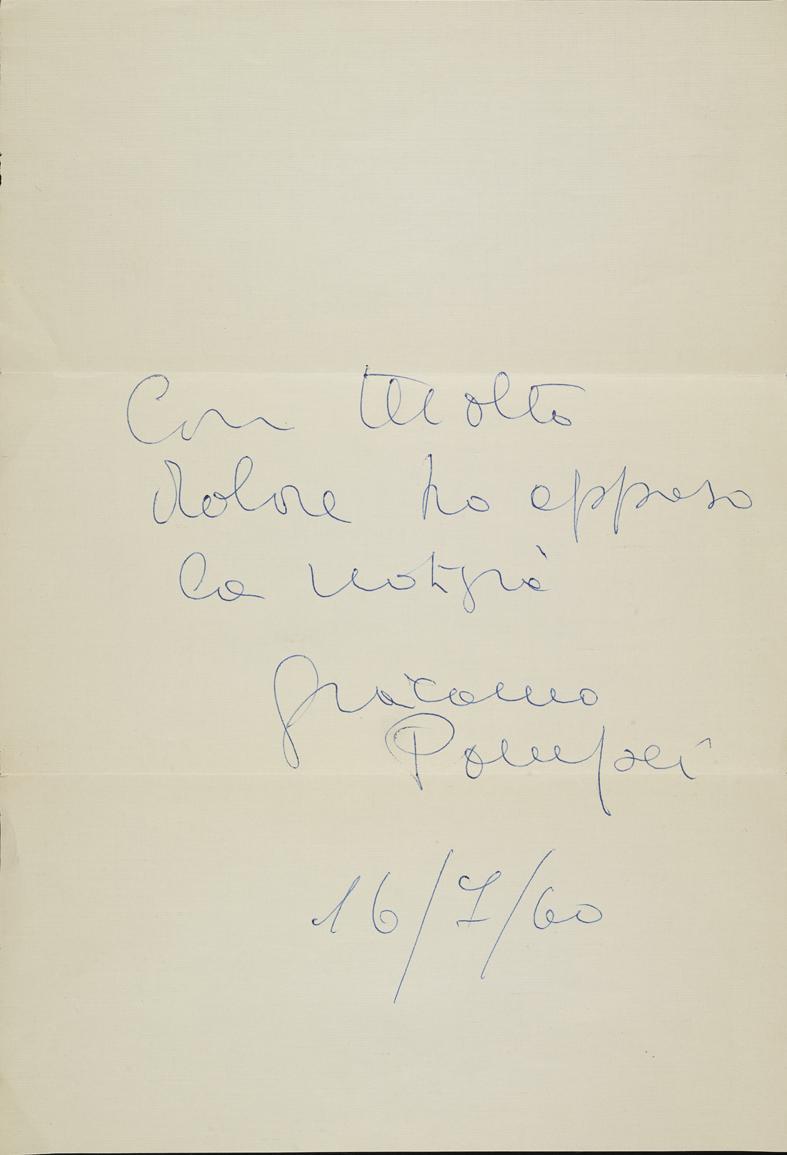 Con Molto
dolore ho appreso
la notizia
Giacomo
Pompei
16/7/60